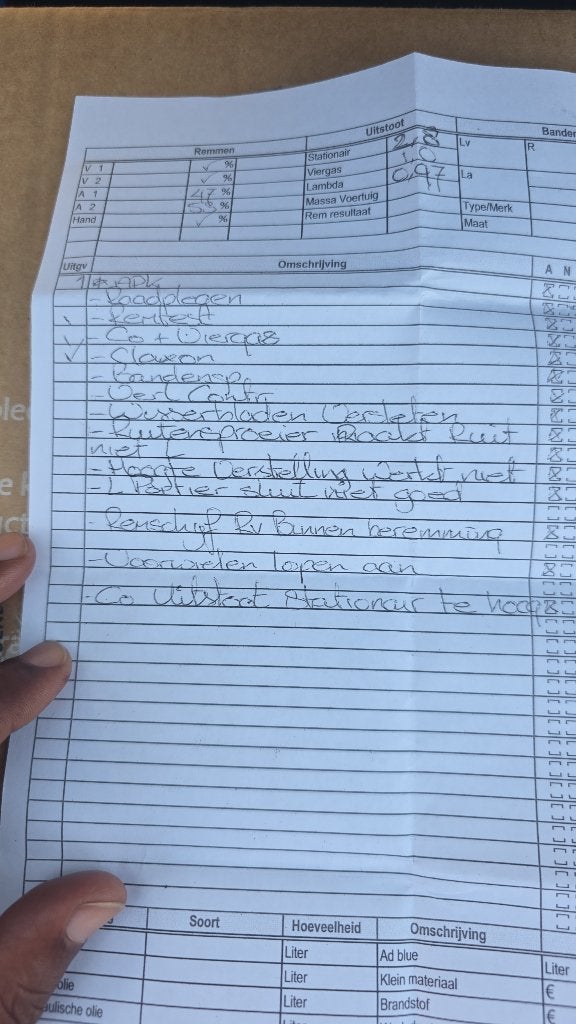 Remmen
Uitstoot
Banden
V 1 ✓ %
Stationair 2,8
Lv
R
V 2 ✓ %
Viergas 1,0
A 1 47 %
Lambda 0,97
La
A 2 %
Massa Voertuig
Type/Merk
Hand ✓ %
Rem resultaat
Maat
Uitgv
Omschrijving
A N
1 * APK
- Raadplegen
- Remtest
- Co + Viergas
- Claxon
- Bandensp.
- Verl Contr
- Wisserbladen Versleten
- Ruitensproeier Raakt Ruit
niet
- Hoogte Verstelling Werkt niet
- L Portier sluit niet goed
- Remschijf RV Binnen beremming
- Voorwielen lopen aan
- Co Uitstoot Stationair te hoog
Soort
Hoeveelheid
Omschrijving
Liter
Ad blue
Liter
olie
Liter
Klein materiaal
€
ulische olie
Liter
Brandstof
€